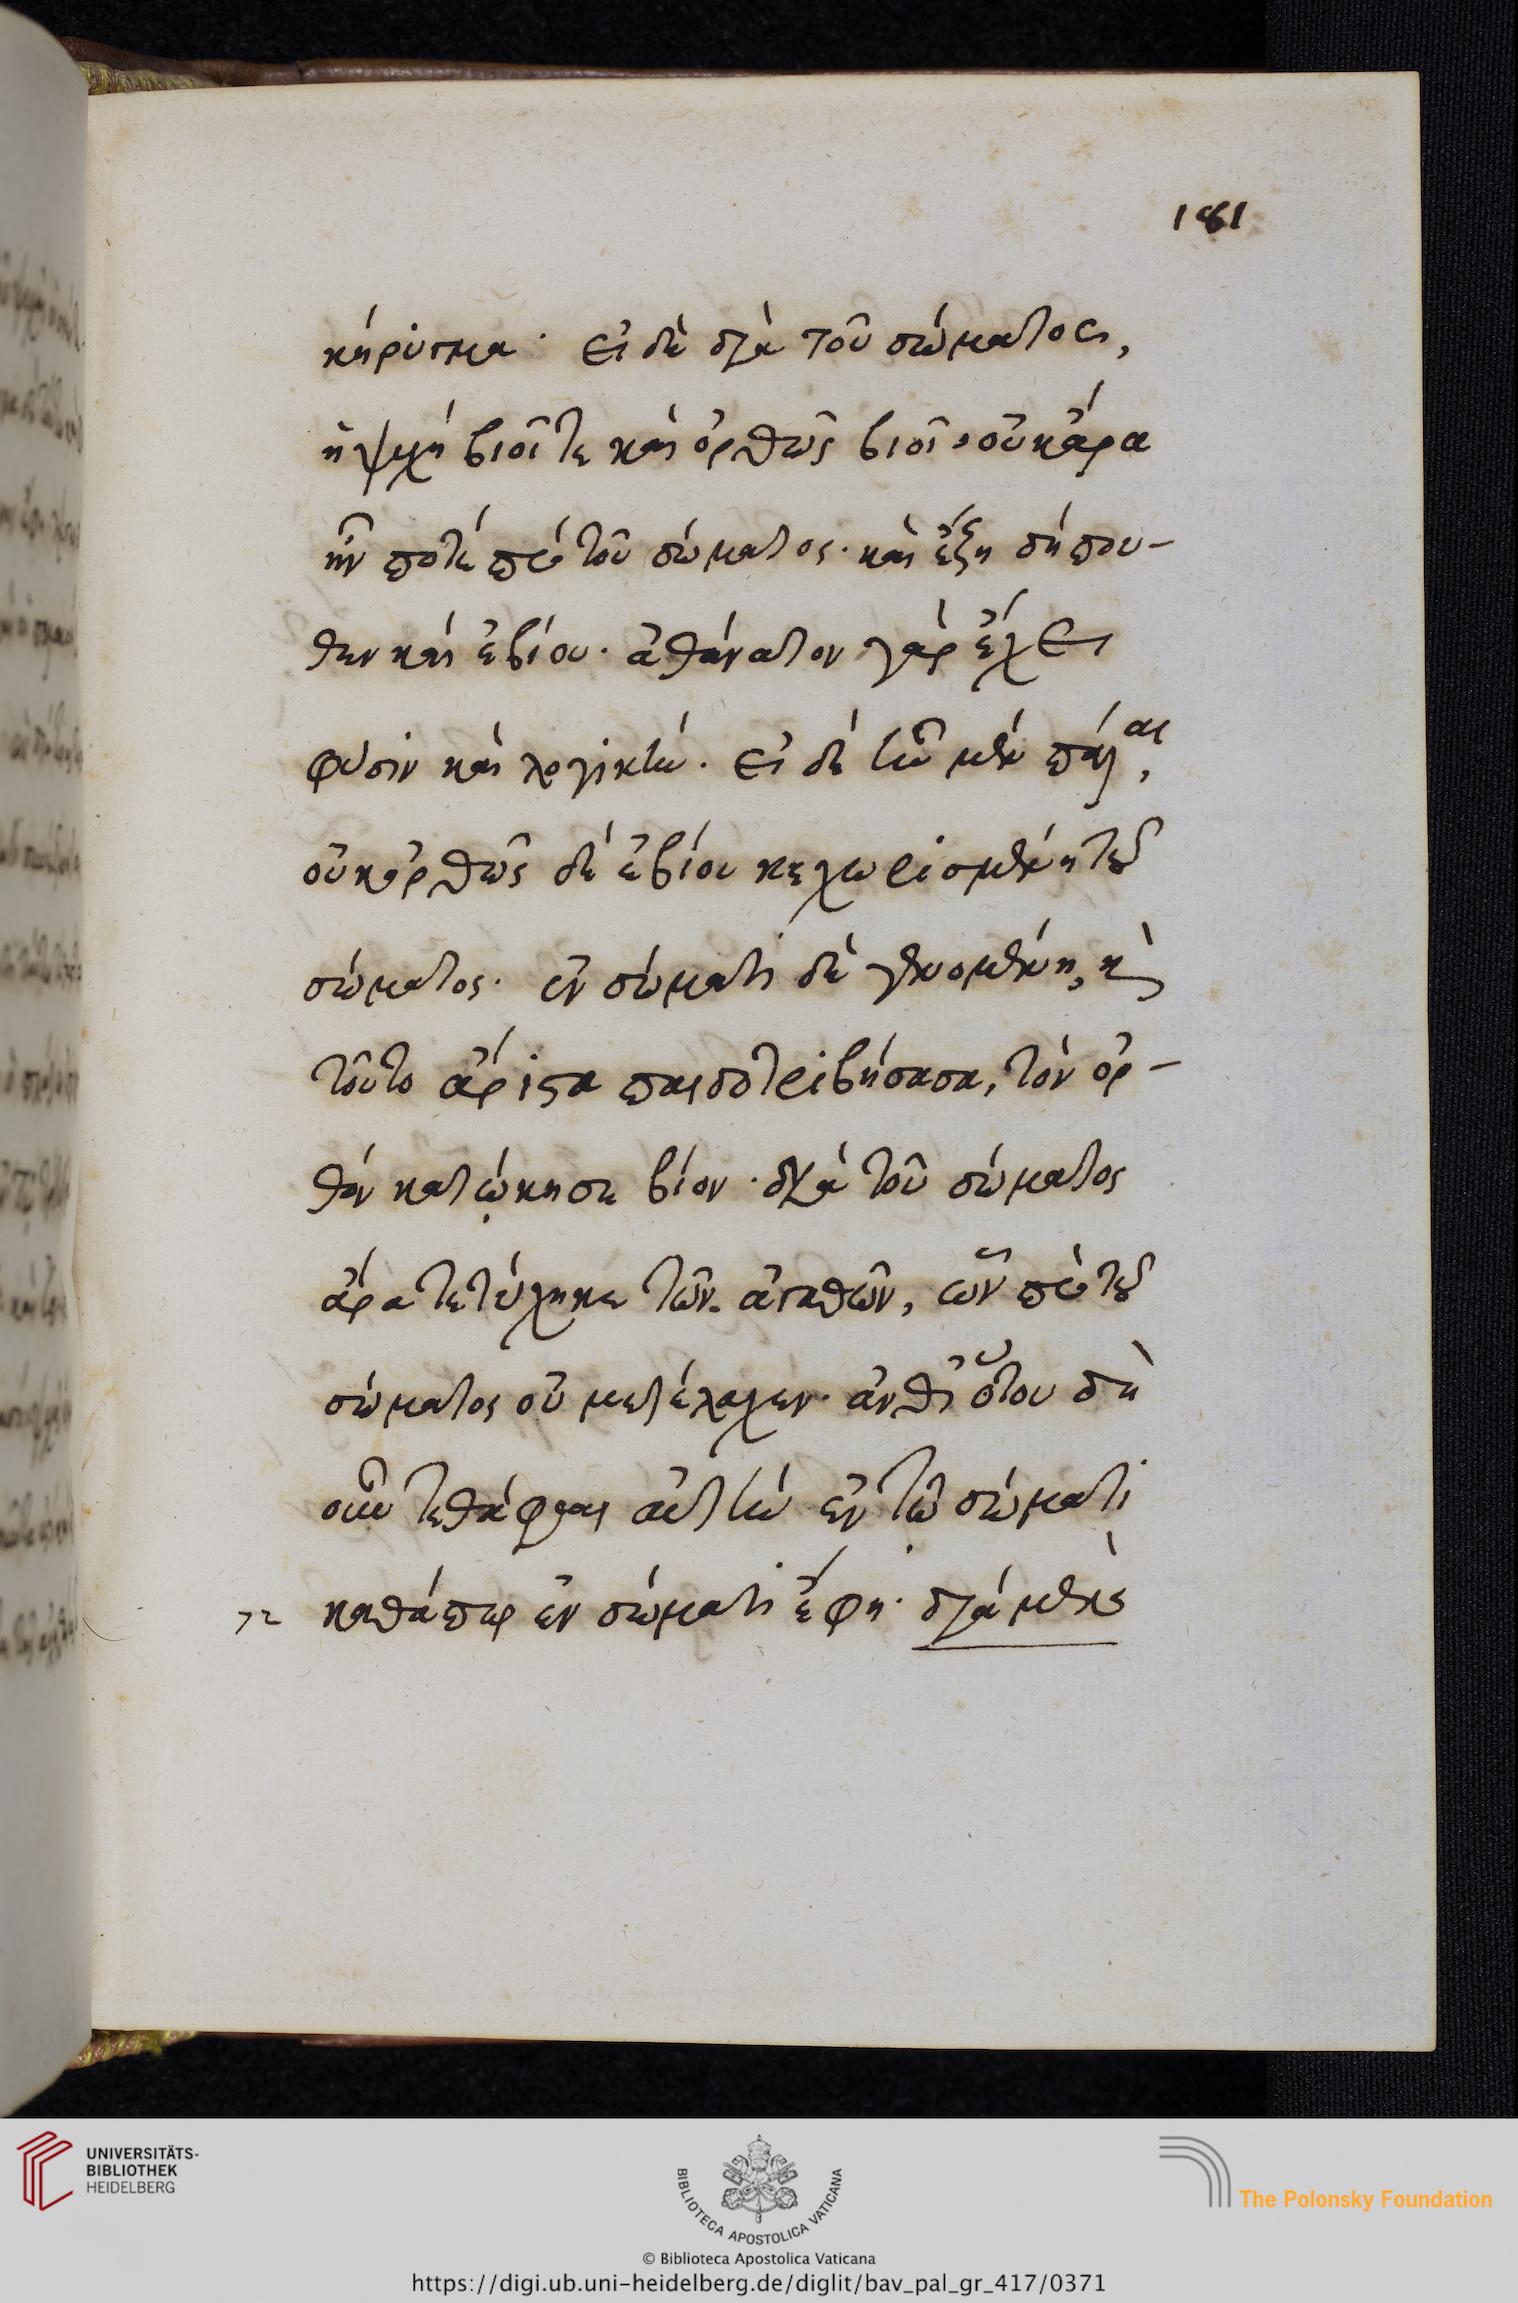 181
κήρυγμα· εἰ δὲ διὰ τοῦ σώματος,
ἡ ψυχὴ βιοῖ τε καὶ ὀρθῶς βιοῖ, οὐκ ἄρα
ἦν ποτὲ πρὸ τοῦ σώματος· καὶ ἔζη δήπου-
θεν καὶ ἐβίου· ἀθάνατον γὰρ ἔχει
φύσιν καὶ λογικήν. εἰ δὲ ἦν μὲν πάλαι,
οὐκ ὀρθῶς δὲ ἐβίου κεχωρισμένη τοῦ
σώματος· ἐν σώματι δὲ γενομένη, καὶ
τοῦτο ἄριστα παιδοτριβήσασα, τὸν ὀρ-
θὸν κατῴκησε βίον· διὰ τοῦ σώματος
ἄρα τετύχηκε τῶν ἀγαθῶν, ὧν πρὸ τοῦ
σώματος οὐ μετέλαχεν· ἀνθ' ὅτου δὴ
οὖν τεθάφθαι αὐτὴν ἐν τῷ σώματι
72 καθάπερ ἐν σώματι ἔφη· διὰ μὲν
UNIVERSITÄTS-
BIBLIOTHEK
HEIDELBERG
BIBLIOTECA APOSTOLICA VATICANA
The Polonsky Foundation
© Biblioteca Apostolica Vaticana
https://digi.ub.uni-heidelberg.de/diglit/bav_pal_gr_417/0371